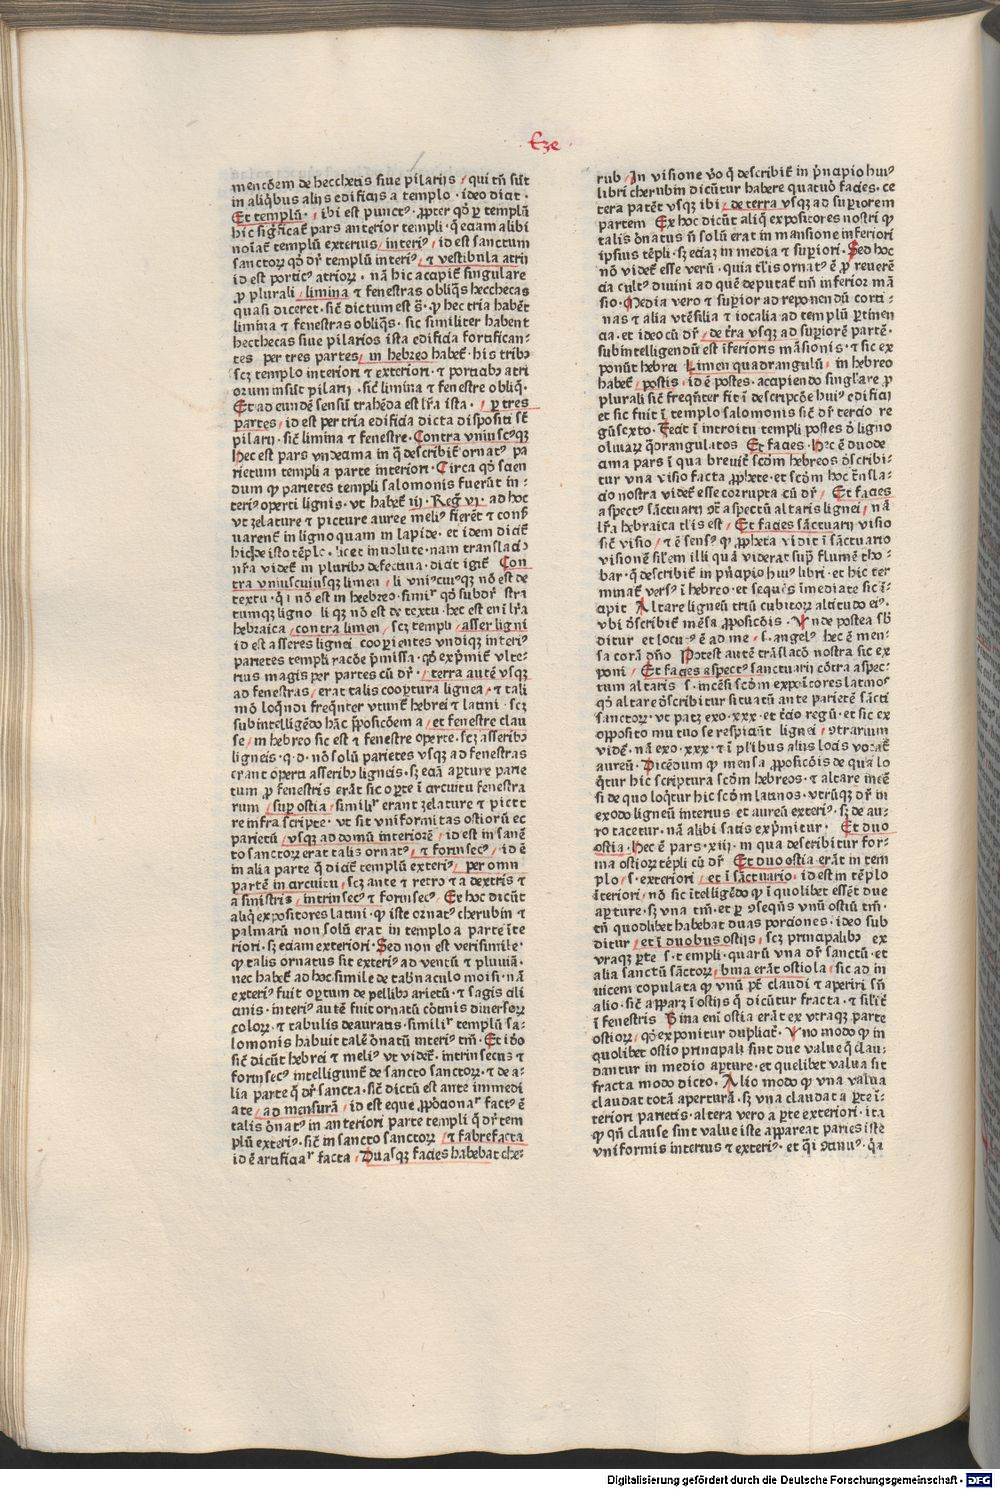 Eze
mencōem de hecchetis siue pilariis / qui tn̄ sūt
in aliq̇bus alijs edificijs a templo · ideo dicit ·
Et templū · / ibi est punctꝰ · ꝓpter qȯ ꝑ templū
hic sigͥficat̄ pars anterior templi · q̄ eciam alibi
noīat̄ templū exteriꝰ / interiꝰ / id est sanctum
sanctorꝝ qȯ dr̄ templū interiꝰ / ⁊ vestibula atrij
id est porticꝰ atriorꝝ · nā hic acapit̄ singulare
ꝓ plurali / limina ⁊ fenestras obliq̄s hecchecas
quasi diceret · sic̄ dictum est s̄ · ꝙ hec tria habēt
limina ⁊ fenestras obliq̄s · sic similiter habent
hecthecas siue pilarios ista edificia fortifican⸗
tes per tres partes / in hebreo habet̄ · his tribꝫ
scꝫ templo interiori ⁊ exteriori · ⁊ porticibꝫ atri
orum insūt pilarij · sic̄ limina ⁊ fenestre obliq̄ ·
Et ad eundē sensū trahēda est lr̄a ista · / ꝑ tres
partes / id est per tria edificia dicta dispositi sūt
pilarij · sic̄ limina ⁊ fenestre · Contra vniuscꝰqꝫ
Hec est pars vndecima in q̄ describit̄ ornatꝰ pa
rietum templi a parte interiori · Circa qȯ scien
dum ꝙ parietes templi salomonis fuerūt in⸗
teriꝰ operti lignis · vt habet̄ iij · Reg̃ vj · ad hoc
vt zelature ⁊ picture auree meliꝰ fierēt ⁊ conẜ
uarent̄ in ligno quam in lapide · et idem dicit̄
hic de isto tēplo · licet inuolute · nam translacio
nr̄a videt̄ in pluribꝫ defectiua · dicit igit̄ Con
tra vniuscuiusqꝫ limen / li vniꝰcuiꝰqꝫ nō est de
textu · q̇ i nō est in heebreo · simirͬ qȯ subdr̄ stra
tumqꝫ ligno li qꝫ nō est de textu · hec est enī lr̄a
hebraica / contra limen / scꝫ templi / asser ligni
id est asseres lignei cooperientes vndiqꝫ interiꝰ
parietes templi racōe p̄missa · qȯ exp̄mit̄ vlte⸗
rius magis per partes cū dr̄ · / terra autē vsqꝫ
ad fenestras / erat talis coopertura lignea / ⁊ tali
mō loq̄ndi freq̄nter vtunt̄ hebrei ⁊ latini · scꝫ
subintelligēdo hāc p̄posicōem a / et fenestre clau
se / in hebreo sic est ⁊ fenestre operte · scꝫ asseribꝫ
ligneis · q · d · nō solū parietes vsqꝫ ad fenestras
erant operti asseribꝫ ligneis · sꝫ eciā aperture parie
tum ꝓ fenestris erāt sic operte ī circuitu fenestra
rum / suꝑ ostia / similirͬ erant zelature ⁊ picte
re infra scripte · vt sit vniformitas ostiorū et
parietū / vsqꝫ ad domū interiorē / id est in sanc̄
to sanctorꝝ erat talis ornatꝰ / ⁊ forinsecꝰ / id ē
in alia parte q̄ dicit̄ templū exteriꝰ / per omn
partē in circuitu / scꝫ ante ⁊ retro ⁊ a dextris ⁊
a sinistris / intrinsecꝰ ⁊ forinsecꝰ · Ex hoc dicūt
aliq̄ expositores latini · ꝙ iste ornatꝰ cherubin ⁊
palmarū non solū erat in templo a parte īte
riori · sꝫ eciam exteriori · Sed non est verisimile ·
ꝙ talis ornatus sit exteriꝰ ad ventū ⁊ pluuiā ·
nec habet̄ ad hoc simile de tab̄naculo moisi · nā
exteriꝰ fuit opertum de pellibꝫ arietū · ⁊ sagis cili
cinis · interiꝰ autē fuit ornatū cōrtinis diuersorꝝ
colorꝝ · ⁊ tabulis deauratis · similirͬ templū sa⸗
lomonis habuit talē ōnatū interiꝰ tm̄ · Et iȯo
sic̄ dicūt hebrei ⁊ meliꝰ vt videt̄ · intrinsecus ⁊
forinsecꝰ intelligunt̄ de sancto sanctorꝝ · ⁊ de a⸗
lia parte q̄ dr̄ sancta · sic̄ dictū est ante immedi
ate / ad mensurā / id est eque ꝓporcōnarͬ factꝰ ē
talis ōnatꝰ in anteriori parte templi q̄ dr̄ tem
plū exteriꝰ · sic̄ in sancto sanctorꝝ / ⁊ fabrefacta
id ē artificiarͬ facta / Duasqꝫ facies habebat che⸗
rub / In visione vȯ q̄ describit̄ in p̄ncipio huiꝰ
libri cherubin dicūtur habere quatuor facies · ce
tera patēt vsqꝫ ibi / de terra vsqꝫ ad superiorem
partem Ex hoc dicūt aliq̄ expositores nostri ꝙ
talis ōnatus n̄ solū erat in mansione inferiori
ipsius tēpli · sꝫ eciaꝫ in media ⁊ superiori · Sed hoc
nō videt̄ esse verū · quia tl̄is ornatꝰ ē ꝓ reuerē
cia cultꝰ diuini ad quē deputat̄ tm̄ inferior mā
sio · Media vero ⁊ suꝑior ad reponendū corti⸗
nas ⁊ alia vtēsilia ⁊ iocalia ad templū ꝑtinen
cia · et ideo cū dr̄ · / de tr̄a vsqꝫ ad suꝑiorē partē ·
subintelligendū est īferioris māsionis · ⁊ sic ex
ponūt hebrei Limen quadrangulū / in hebreo
habet̄ / postis / id ē postes · acapiendo singl̓are ꝓ
plurali sic̄ freq̄nter fit ī descripcōe huiꝰ edificij
et sic fuit ī templo salomonis sic̄ dr̄ tercio re
gū sexto · Fecit ī introitu templi postes ō ligno
oliuarꝝ q̄drangulatos Et facies · Hec ē duode
cima pars ī qua breuit̄ scōm hebreos ōscribi⸗
tur vna visio facta ꝓphete · et scōm hoc t̄nsla⸗
cio nostra videt̄ esse corrupta cū dr̄ / Et facies
aspectꝰ sāctuarij ꝯt̄ aspectū altaris lignei / nā
lr̄a hebraica tl̄is est / Et facies sāctuarij visio
sic̄ visio / ⁊ ē sensꝰ ꝙ ꝓpheta vidit ī sāctuario
visionē sil̄em illi quā viderat suꝑ flumē cho⸗
bar · q̄ describit̄ in p̄ncipio huiꝰ libri · et hic ter
minat̄ versꝰ ī hebreo · et seq̄ns īmediate sic ī⸗
cipit Altare ligneū triū cubitorꝝ altitudo eiꝰ ·
vbi ōscribit̄ mēsa ꝓposicōis · Vnde postea sb̄
ditur et locutꝰ ē ad me / s · angelꝰ hec ē men⸗
sa corā dn̄o Potest autē trāslacō nostra sic ex
poni / Et facies aspectꝰ sanctuarij cōtra aspec⸗
tum altaris s · incēsi scōm expoītores latinoꝰ
qȯ altare ōscribitur situatū ante parietē sācti
sanctorꝝ · vt patꝫ exo · xxx · et t̄cio regū · et sic ex
opposito mutuo se respiciūt lignei / ꝯtrarium
videt̄ · nā exo · xxx · ⁊ ī pl̓ibus alijs locis vocat̄
aureū · Dicēdum ꝙ mensa ꝓposicōis de qua lo
q̄tur hic scriptura scōm hebreos · ⁊ altare incē
si de quo loq̄tur hic scōm latinos · vtrūqꝫ dr̄ in
exodo ligneū interius et aureū exteriꝰ · sꝫ de au⸗
ro tacetur · nā alibi satis exp̄mitur · Et duo
ostia · Hec ē pars · xiij · in qua describitur for⸗
ma ostiorꝝ tēpli cū dr̄ Et duo ostia erāt in tem
plo / s · exteriori / et ī sāctuario · id est in tēplo
īteriori / nō sic ītelligēdo ꝙ ī quolibet essēt due
aꝑture · sꝫ vna tm̄ · et ꝑ ꝯseq̄ns vnū ostiū tm̄ ·
tn̄ quodlibet habebat duas porciones · ideo sub
ditur / et ī duobus ostijs / scꝫ principalibꝫ ex
vtraqꝫ ꝑte s · templi · quarū vna dr̄ sanctū · et
alia sanctū sāctorꝝ / bina erāt ostiola / sic ad in
uicem copulata ꝙ vnū pt̄ claudi ⁊ aperiri sn̄
alio · sic̄ apparꝫ ī ostijs q̄ dicūtur fracta · ⁊ sil̄it̄
ī fenestris Bina enī ostia erāt ex vtraqꝫ parte
ostiorꝝ / qȯ exponitur dupl̄icit̄ · Vno modo ꝙ in
quolibet ostio principali sint due value q̄ clau⸗
dantur in medio aꝑture · et quelibet valua sit
fracta modo dicto · Alio modo ꝙ vna valua
claudat totā aperturā · sꝫ vna claudat a ꝑte ī⸗
teriori parietis · altera vero a ꝑte exteriori · ita
ꝙ qn̄ clause sint value iste appareat paries iste
vniformis interius ⁊ exteriꝰ · et q̄i ꝯtinuꝰ · q̇a
Digitalisierung gefördert durch die Deutsche Forschungsgemeinschaft - DFG